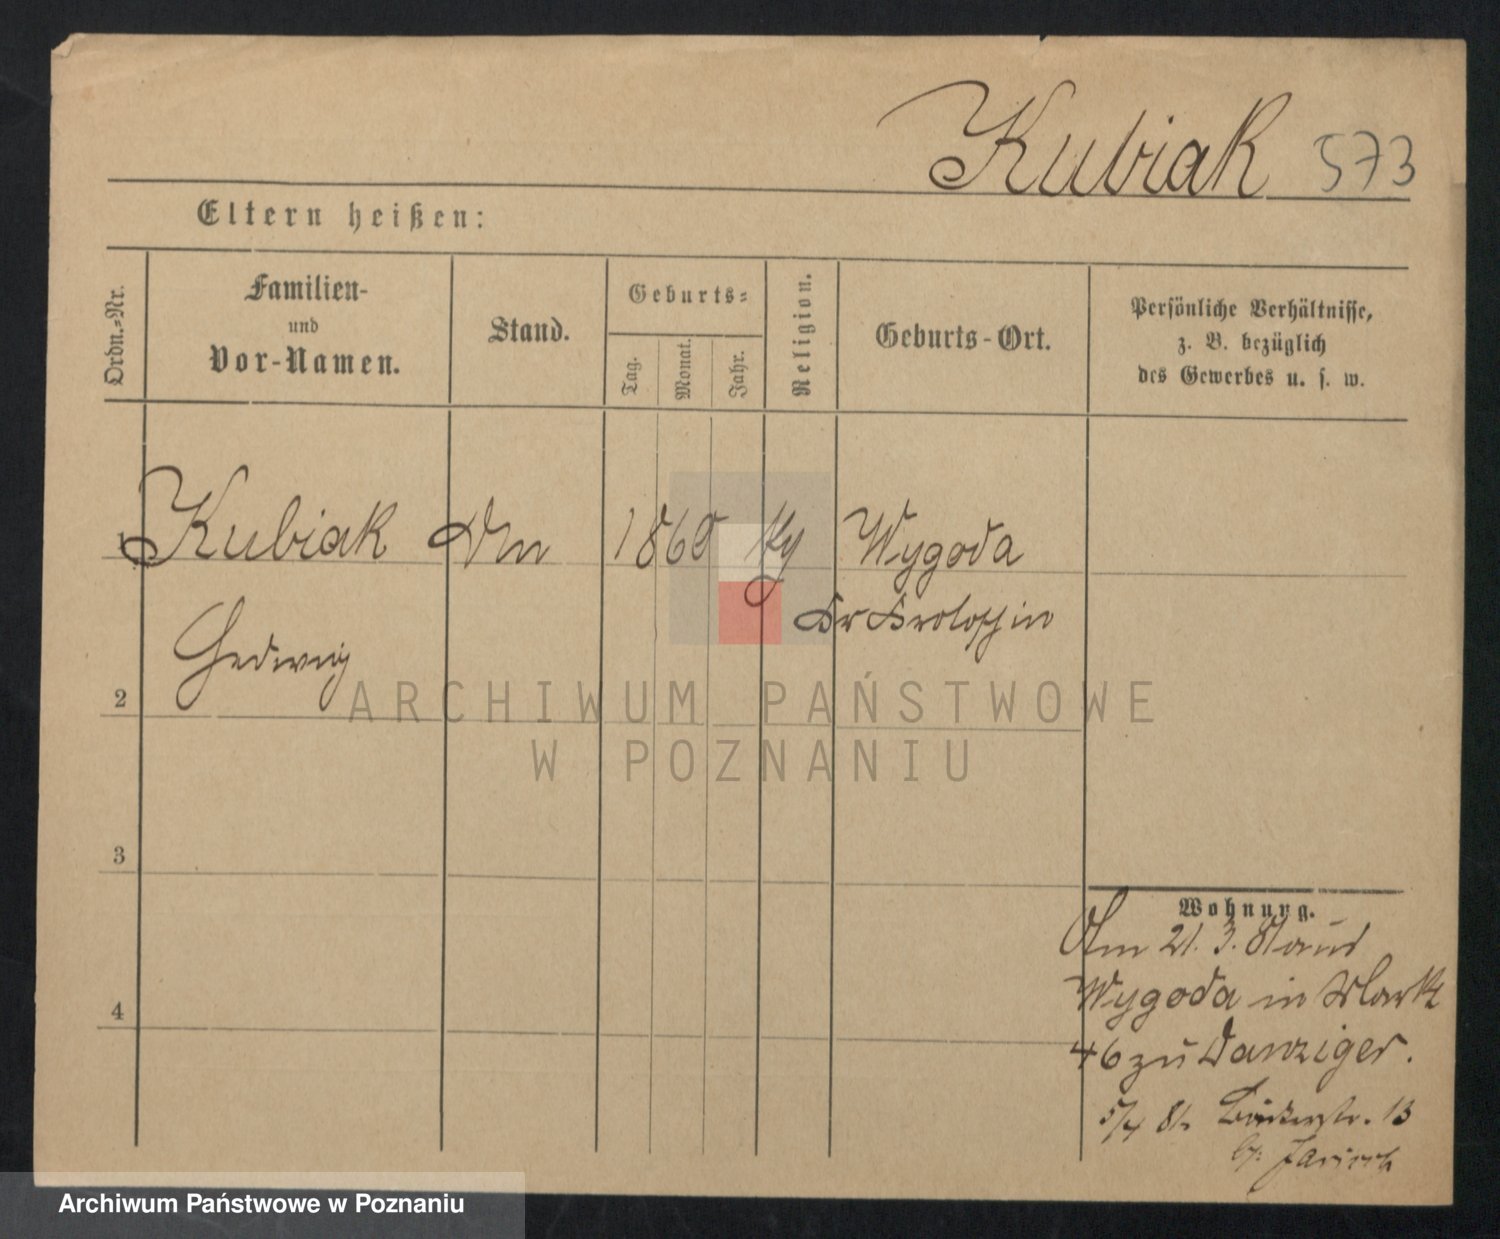 Kubiak 573
Eltern heißen:
Ordn.-Nr.
Familien-
und
Vor-Namen.
Stand.
Geburts-
Tag.
Monat.
Jahr.
Religion.
Geburts-Ort.
Persönliche Verhältnisse,
z. B. bezüglich
des Gewerbes u. s. w.
1 Kubiak 1860 Wygoda
Kr Krotoschin
Hedwig
2
ARCHIWUM PAŃSTWOWE
W POZNANIU
3
Wohnung.
Am 21. 3. 81 aus
Wygoda in Markt
46 zu Danziger.
4
5/4 81. 13
Archiwum Państwowe w Poznaniu